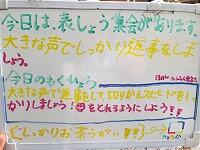 今日は、表しょう集会があります。
大きな声でしっかり返事をしま
しょう。
今日のもくひょう
大きな声で返事をして切りかえスピードをし
っかりしましょう!
をとれるようにしよう!!
くしっかりお茶うがい!!